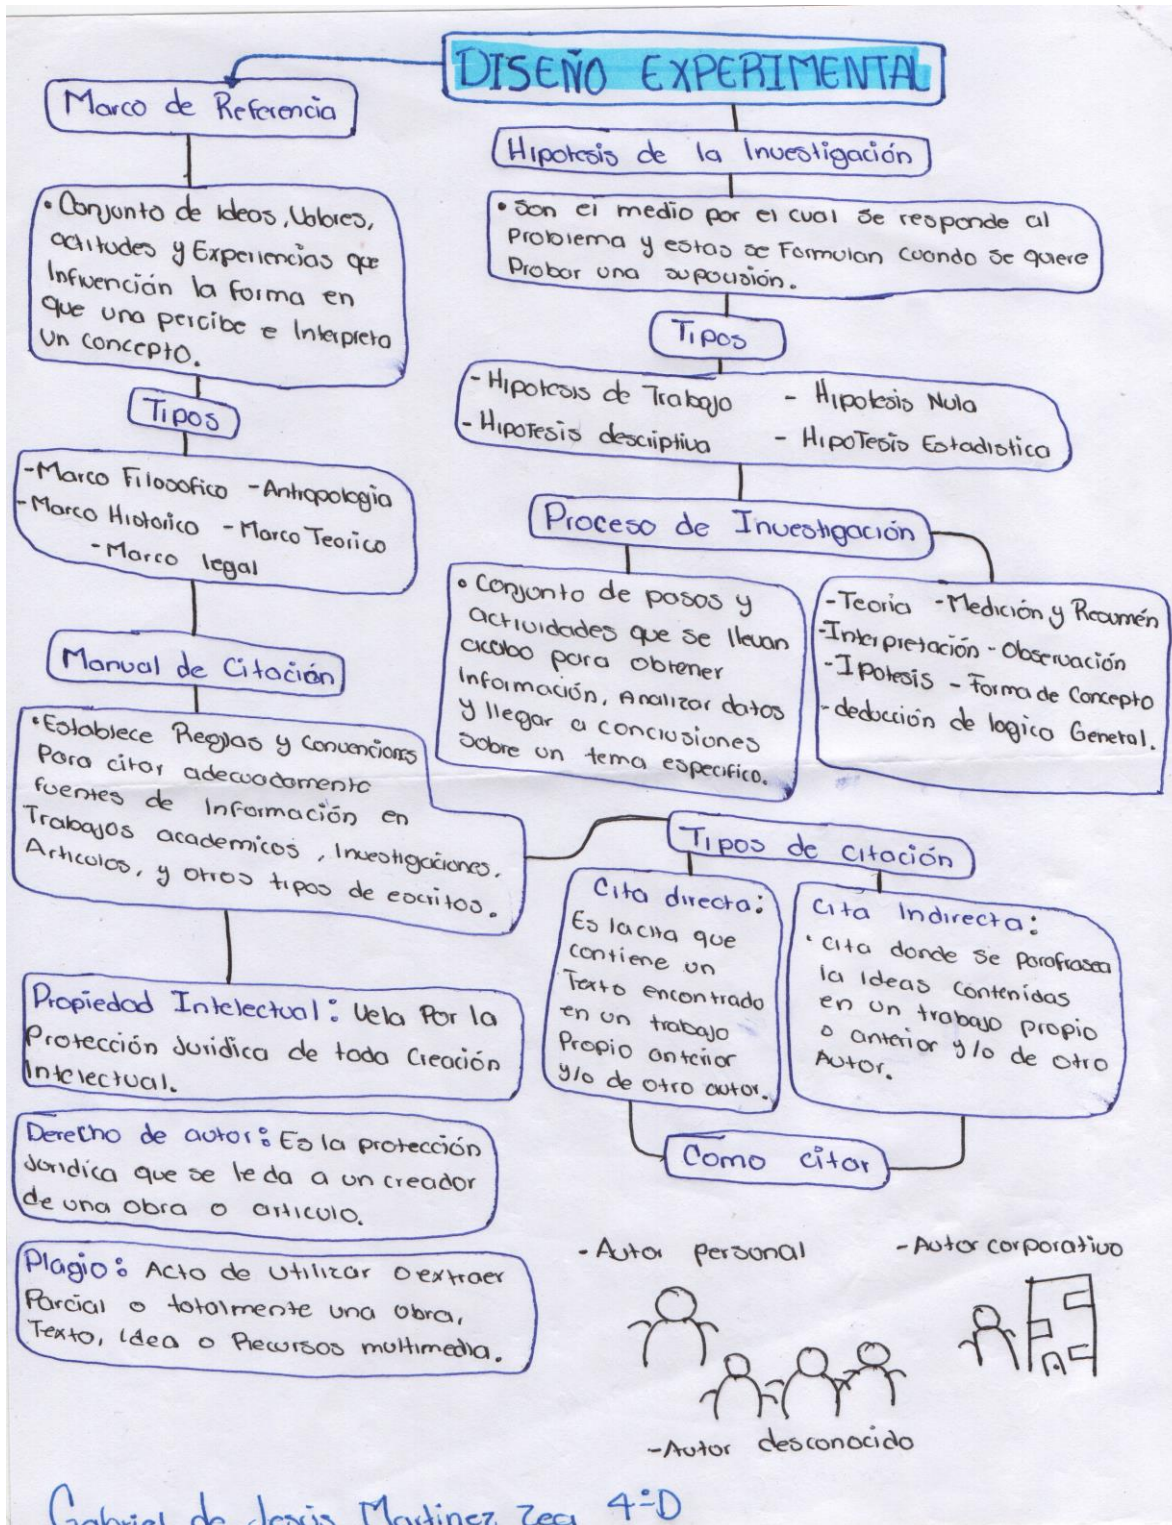 DISEÑO EXPERIMENTAL
Marco de Referencia
• Conjunto de ideas, Valores,
actitudes y Experiencias que
Influención la forma en
que una percibe e Interpreta
un concepto.
Tipos
-Marco Filosofico -Antropologia
-Marco Historico -Marco Teorico
-Marco legal
Manual de Citación
• Establece Reglas y Convenciones
Para citar adecuadamente
fuentes de Información en
Trabajos academicos, Investigaciones,
Articulos, y otros tipos de escritos.
Propiedad Intelectual: Vela Por la
Protección Juridica de toda Creación
Intelectual.
Derecho de autor: Es la protección
Juridica que se le da a un creador
de una obra o articulo.
Plagio: Acto de utilizar o extraer
Parcial o totalmente una obra,
Texto, idea o Recursos multimedia.
Hipotesis de la Investigación
• Son el medio por el cual se responde al
Problema y estas se Formulan cuando se quiere
Probar una suposición.
Tipos
- Hipotesis de Trabajo - Hipotesis Nula
- Hipotesis descriptiva - Hipotesis Estadistica
Proceso de Investigación
• Conjunto de pasos y
actividades que se llevan
acabo para obtener
Información, Analizar datos
y llegar a conclusiones
sobre un tema especifico.
-Teoria -Medición y Resumén
-Interpretación - Observación
-Ipotesis - Forma de Concepto
-deducción de logica General.
Tipos de citación
Cita directa:
Es la cita que
contiene un
Texto encontrado
en un trabajo
Propio anterior
y/o de otro autor.
Cita Indirecta:
• Cita donde se parafrasea
la ideas contenidas
en un trabajo propio
o anterior y/o de otro
Autor.
Como citar
- Autor personal
-Autor corporativo
-Autor desconocido
Gabriel de Jesús Martinez Zea 4°D